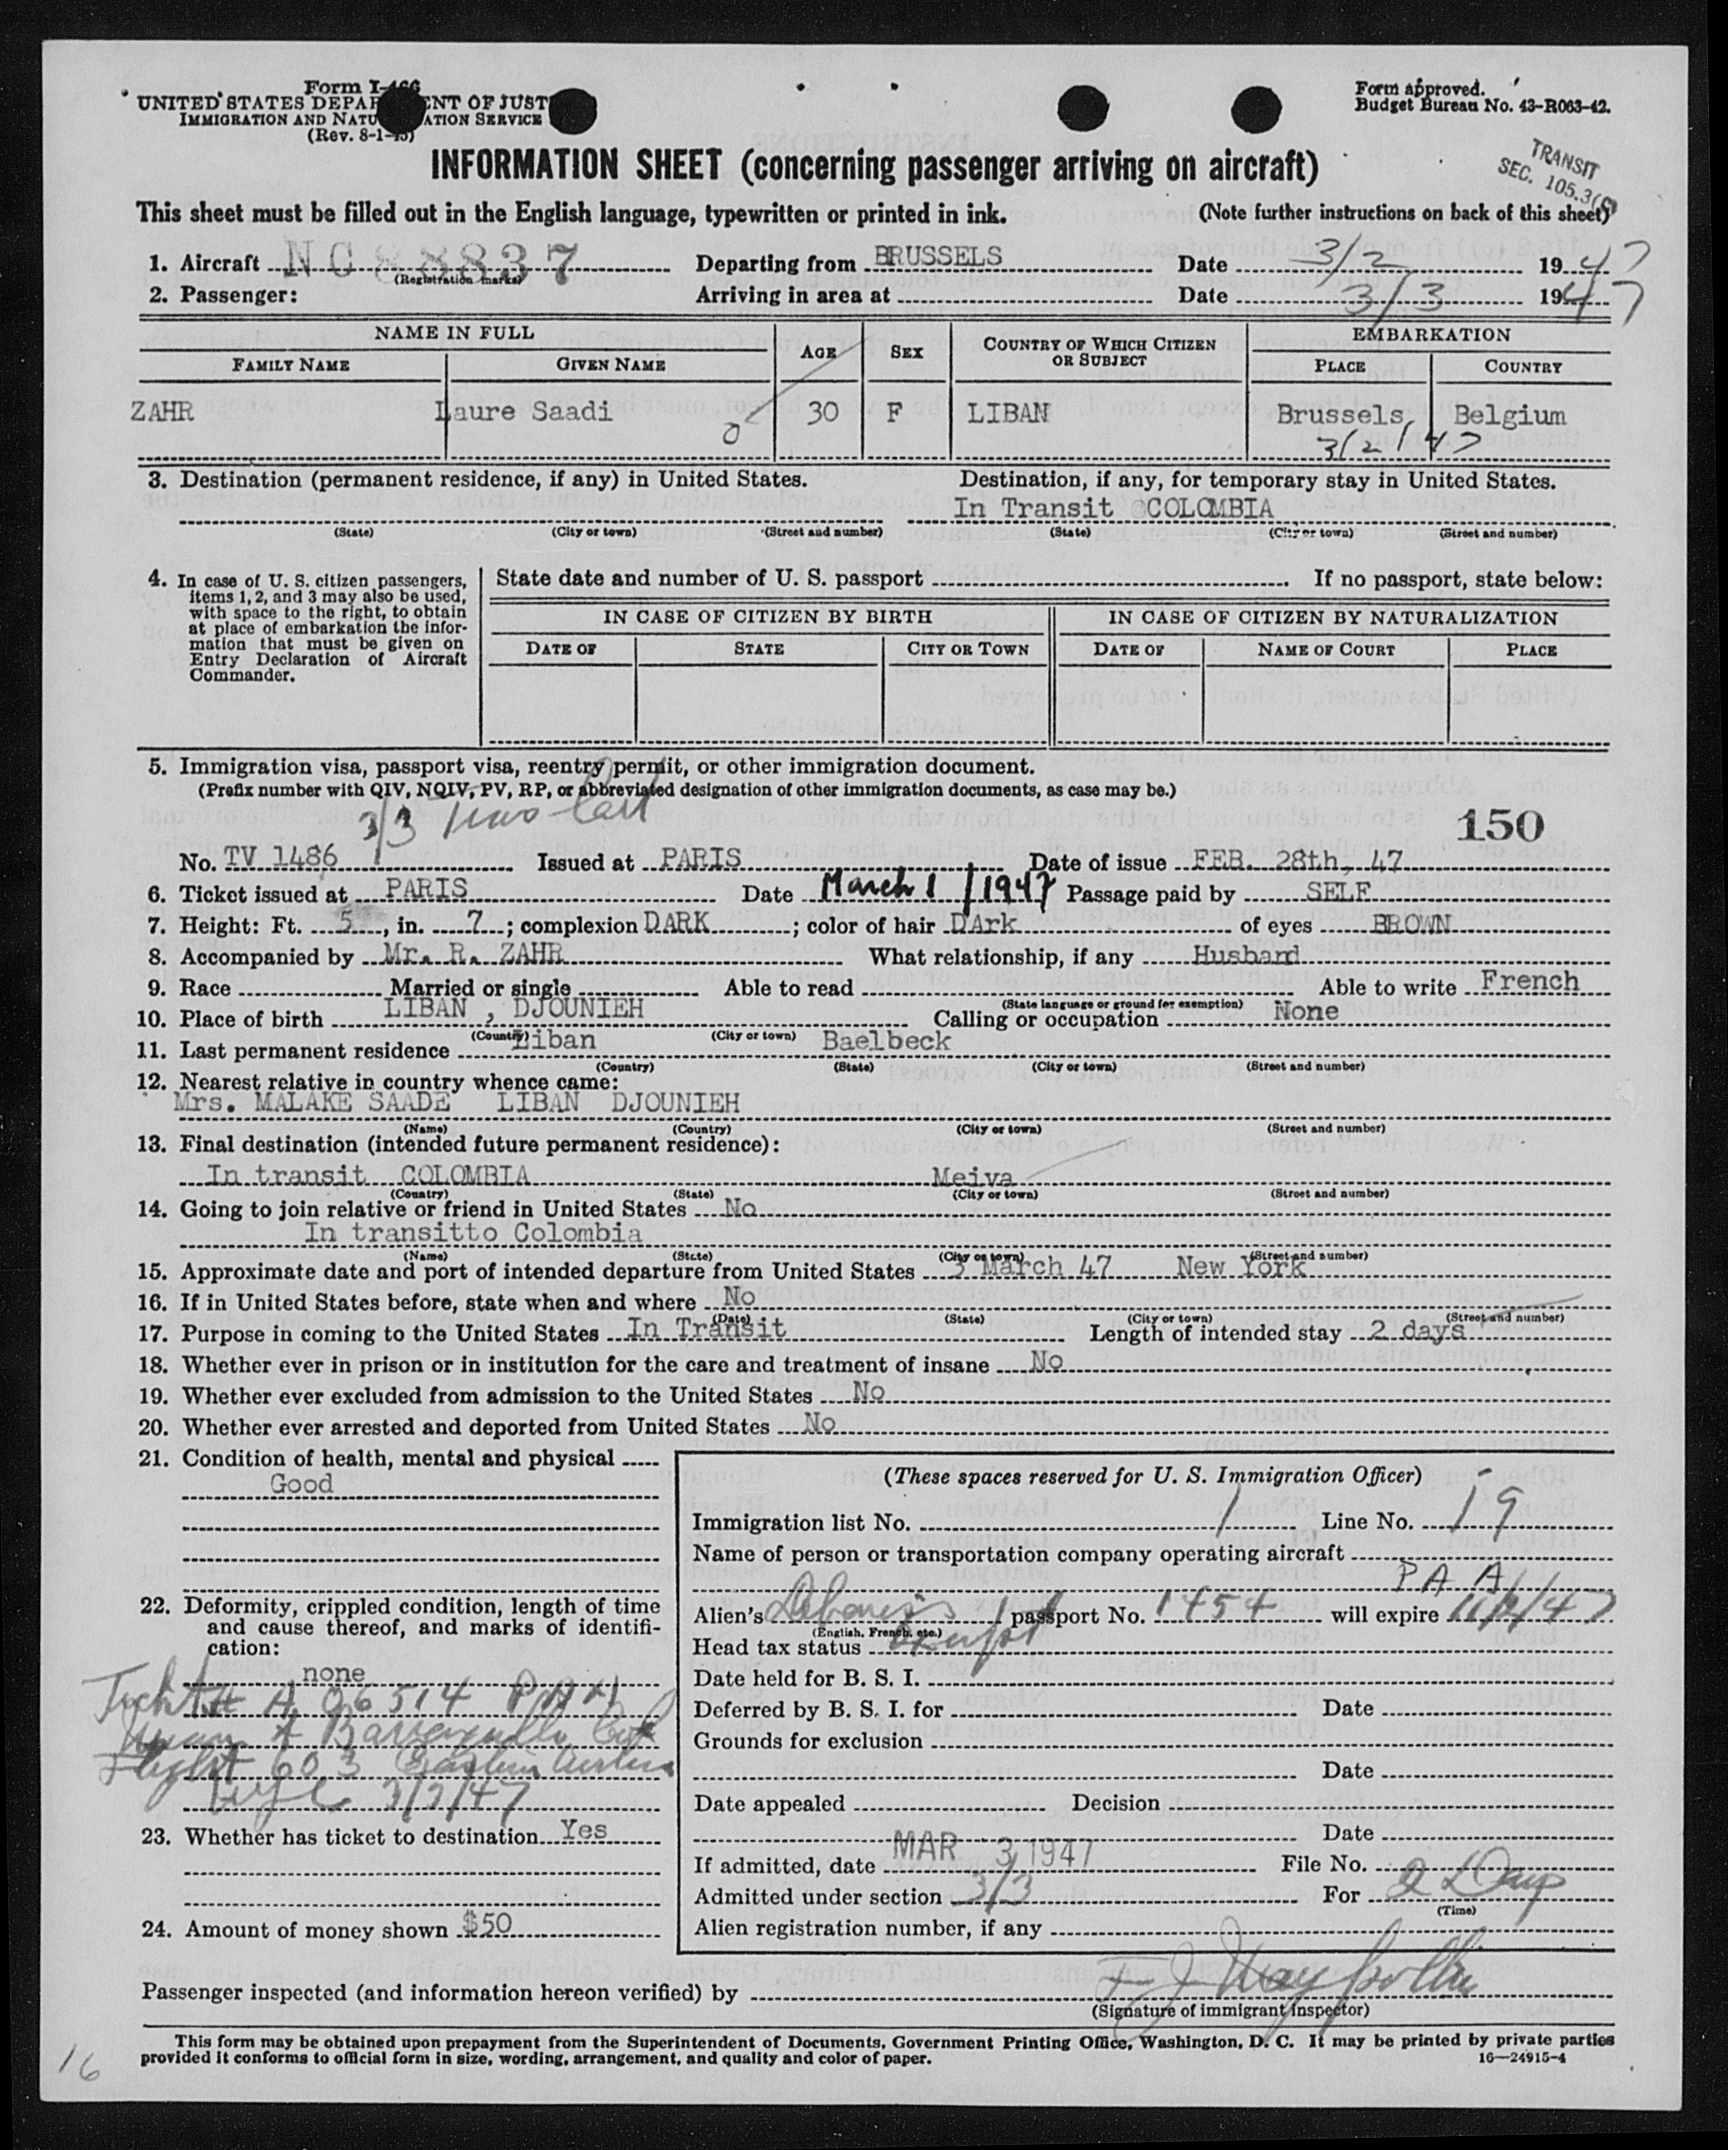 Form I-466
UNITED STATES DEPARTMENT OF JUSTICE
IMMIGRATION AND NATURALIZATION SERVICE
(Rev. 8-1-45)
Form approved.
Budget Bureau No. 43-R063-42.
TRANSIT
SEC. 105.3(
INFORMATION SHEET (concerning passenger arriving on aircraft)
This sheet must be filled out in the English language, typewritten or printed in ink. (Note further instructions on back of this sheet)
1. Aircraft NC 88837 Departing from BRUSSELS Date 3/2 1947
(Registration marks)
2. Passenger: Arriving in area at Date 3/3 1947
NAME IN FULL AGE SEX COUNTRY OF WHICH CITIZEN OR SUBJECT EMBARKATION
FAMILY NAME GIVEN NAME PLACE COUNTRY
ZAHR Laure Saadi 30 F LIBAN Brussels, Belgium
3/2/47
3. Destination (permanent residence, if any) in United States. Destination, if any, for temporary stay in United States.
In Transit COLOMBIA
(State) (City or town) (Street and number) (State) (City or town) (Street and number)
4. In case of U. S. citizen passengers, items 1, 2, and 3 may also be used, with space to the right, to obtain at place of embarkation the information that must be given on Entry Declaration of Aircraft Commander.
State date and number of U. S. passport If no passport, state below:
IN CASE OF CITIZEN BY BIRTH IN CASE OF CITIZEN BY NATURALIZATION
DATE OF STATE CITY OR TOWN DATE OF NAME OF COURT PLACE
5. Immigration visa, passport visa, reentry permit, or other immigration document.
(Prefix number with QIV, NQIV, PV, RP, or abbreviated designation of other immigration documents, as case may be.)
3/3
150
No. TV 1486 Issued at PARIS Date of issue FEB. 28th, 47
6. Ticket issued at PARIS Date March 1/1947 Passage paid by SELF
7. Height: Ft. 5, in. 7; complexion DARK; color of hair DArk of eyes BROWN
8. Accompanied by Mr. R. ZAHR What relationship, if any Husband
9. Race Married or single Able to read Able to write French
(State language or ground for exemption)
10. Place of birth LIBAN , DJOUNIEH Calling or occupation None
(Country) (City or town)
11. Last permanent residence Liban Baelbeck
(Country) (State) (City or town) (Street and number)
12. Nearest relative in country whence came:
Mrs. MALAKE SAADE LIBAN DJOUNIEH
(Name) (Country) (City or town) (Street and number)
13. Final destination (intended future permanent residence):
In transit COLOMBIA Meiva
(Country) (State) (City or town) (Street and number)
14. Going to join relative or friend in United States No
In transitto Colombia
(Name) (State) (City or town) (Street and number)
15. Approximate date and port of intended departure from United States 3 March 47 New York
16. If in United States before, state when and where No
(Date) (State) (City or town) (Street and number)
17. Purpose in coming to the United States In Transit Length of intended stay 2 days
18. Whether ever in prison or in institution for the care and treatment of insane No
19. Whether ever excluded from admission to the United States No
20. Whether ever arrested and deported from United States No
21. Condition of health, mental and physical
Good
22. Deformity, crippled condition, length of time and cause thereof, and marks of identification:
none
A 06514
Flight 603 Eastern
3/3/47
23. Whether has ticket to destination Yes
24. Amount of money shown $50
(These spaces reserved for U. S. Immigration Officer)
Immigration list No. 1 Line No. 19
Name of person or transportation company operating aircraft
PAA
Alien's passport No. 1454 will expire
(English, French, etc.)
Head tax status Exempt
Date held for B. S. I.
Deferred by B. S. I. for Date
Grounds for exclusion
Date
Date appealed Decision
Date
If admitted, date MAR 3 1947 File No.
Admitted under section 3/3 For 2 Days
(Time)
Alien registration number, if any
Passenger inspected (and information hereon verified) by
(Signature of immigrant inspector)
This form may be obtained upon prepayment from the Superintendent of Documents, Government Printing Office, Washington, D. C. It may be printed by private parties
provided it conforms to official form in size, wording, arrangement, and quality and color of paper.
16—24915-4
16